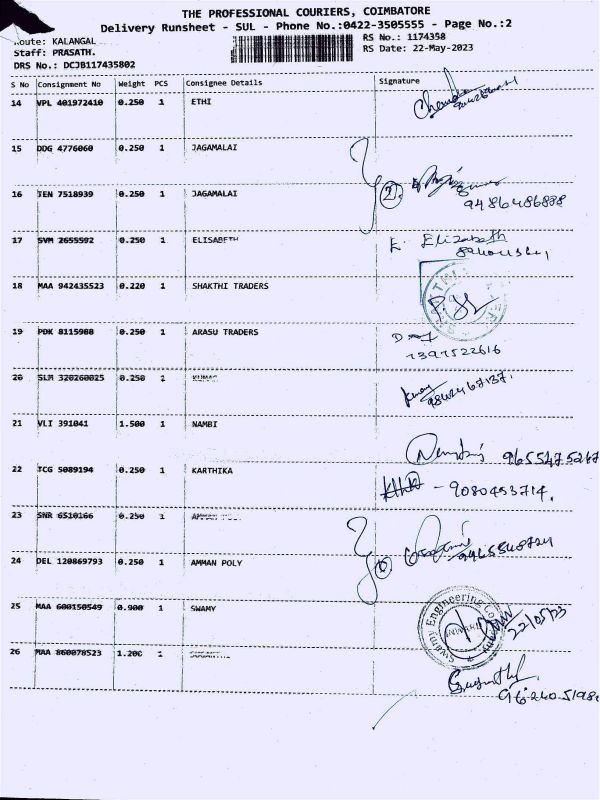 THE PROFESSIONAL COURIERS, COIMBATORE
Delivery Runsheet - SUL - Phone No.:0422-3505555 - Page No.:2
Route: KALANGAL
RS No.: 1174358
Staff: PRASATH.
RS Date: 22-May-2023
DRS No.: DCJB117435802
S No Consignment No Weight PCS Consignee Details Signature
14 VPL 401972410 0.250 1 ETHI
15 DDG 4776060 0.250 1 JAGAMALAI
16 TEN 7518939 0.250 1 JAGAMALAI
2
9486486888
17 SVM 2655592 0.250 1 ELISABETH
E. Elizabeth
18 MAA 942435523 0.220 1 SHAKTHI TRADERS
19 PDK 8115988 0.250 1 ARASU TRADERS
7397522616
20 SLM 320260025 0.250 1 KUMAR
9842467137.
21 VLI 391041 1.500 1 NAMBI
9655475267
22 TCG 5089194 0.250 1 KARTHIKA
- 9080453714.
23 SNR 6510166 0.250 1 AMMAN
24 DEL 120869793 0.250 1 AMMAN POLY
25 MAA 600150549 0.900 1 SWAMY
Swamy Engineering
22/05/23
26 MAA 860078523 1.200 1